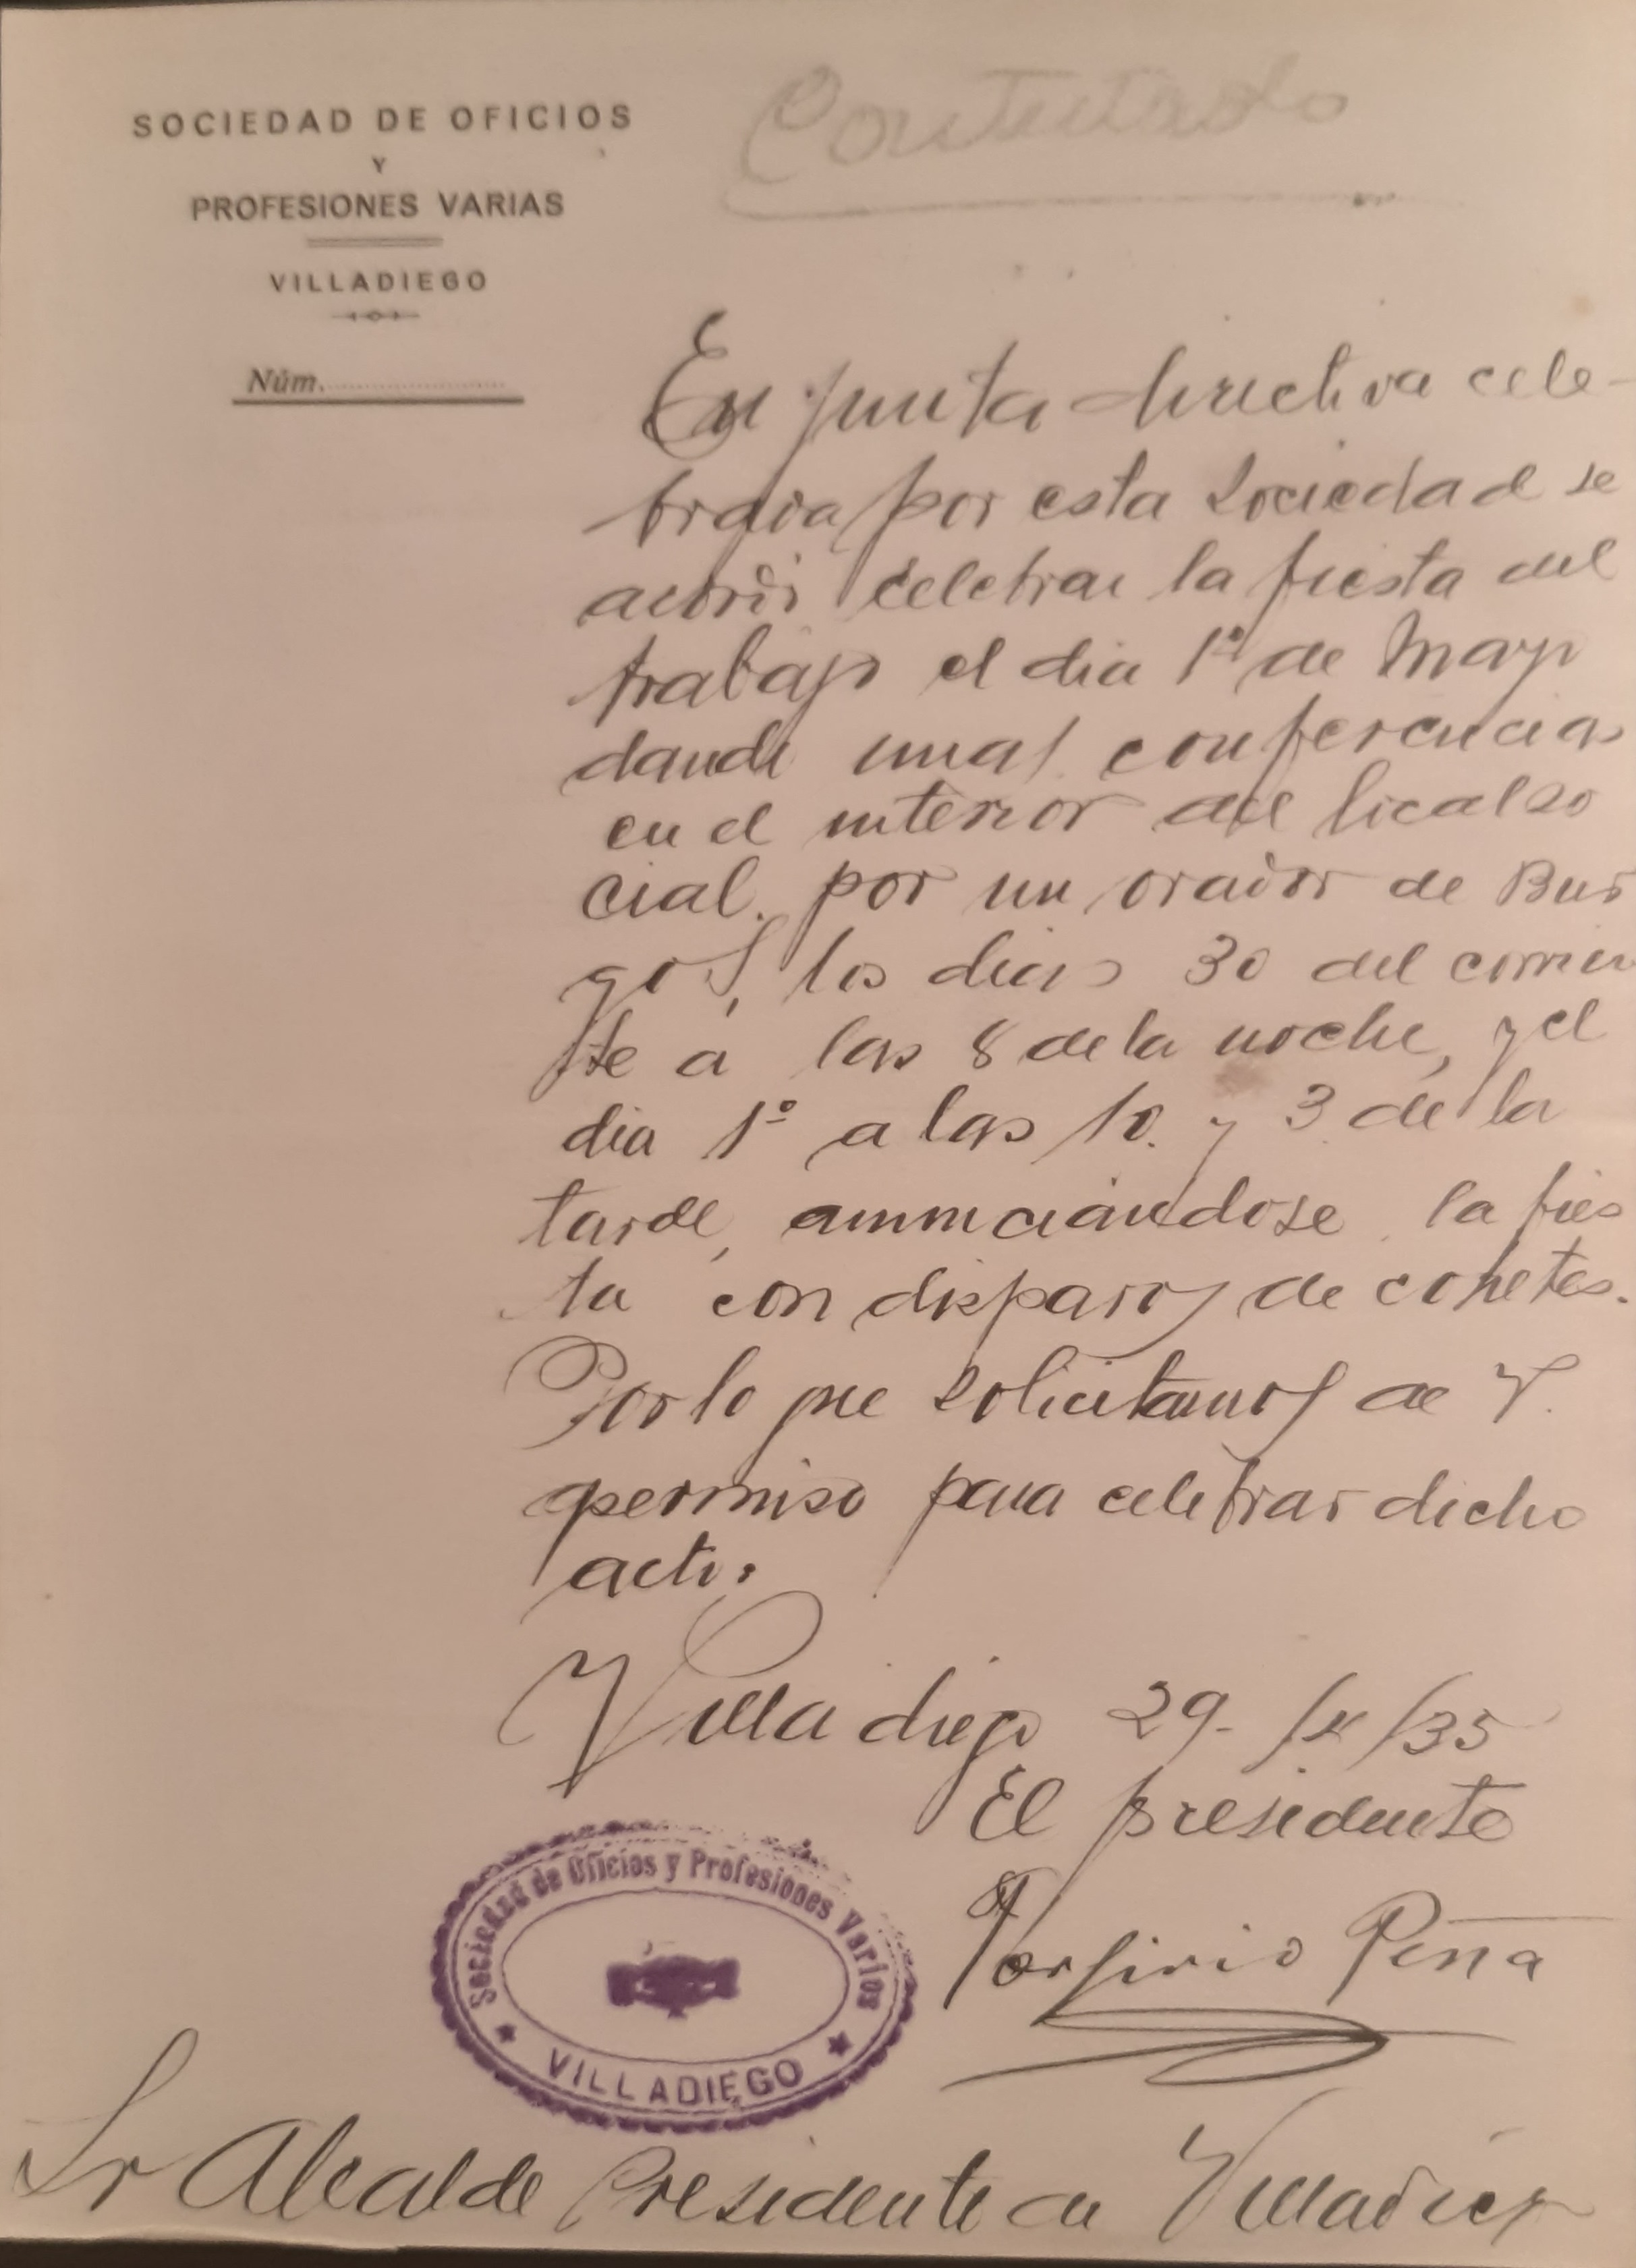 SOCIEDAD DE OFICIOS
Y
PROFESIONES VARIAS
VILLADIEGO
Núm.
Contestado
En junta directiva cele-
brada por esta Sociedad se
acordó celebrar la fiesta del
trabajo el dia 1º de Mayo
dando unas conferencias
en el interior del local so
cial. por un orador de Bur
gos, los dias 30 del corrien
te a las 8 de la noche, y el
dia 1º a las 10. y 3 de la
tarde, anunciándose la fies
ta con disparos de cohetes.
Por lo que solicitamos de V.
permiso para celebrar dicho
acto.
Villadiego 29- /4/35
El presidente
Porfirio Peña
Sociedad de Oficios y Profesiones Varios
VILLADIEGO
Sr Alcalde Presidente de Villadiego